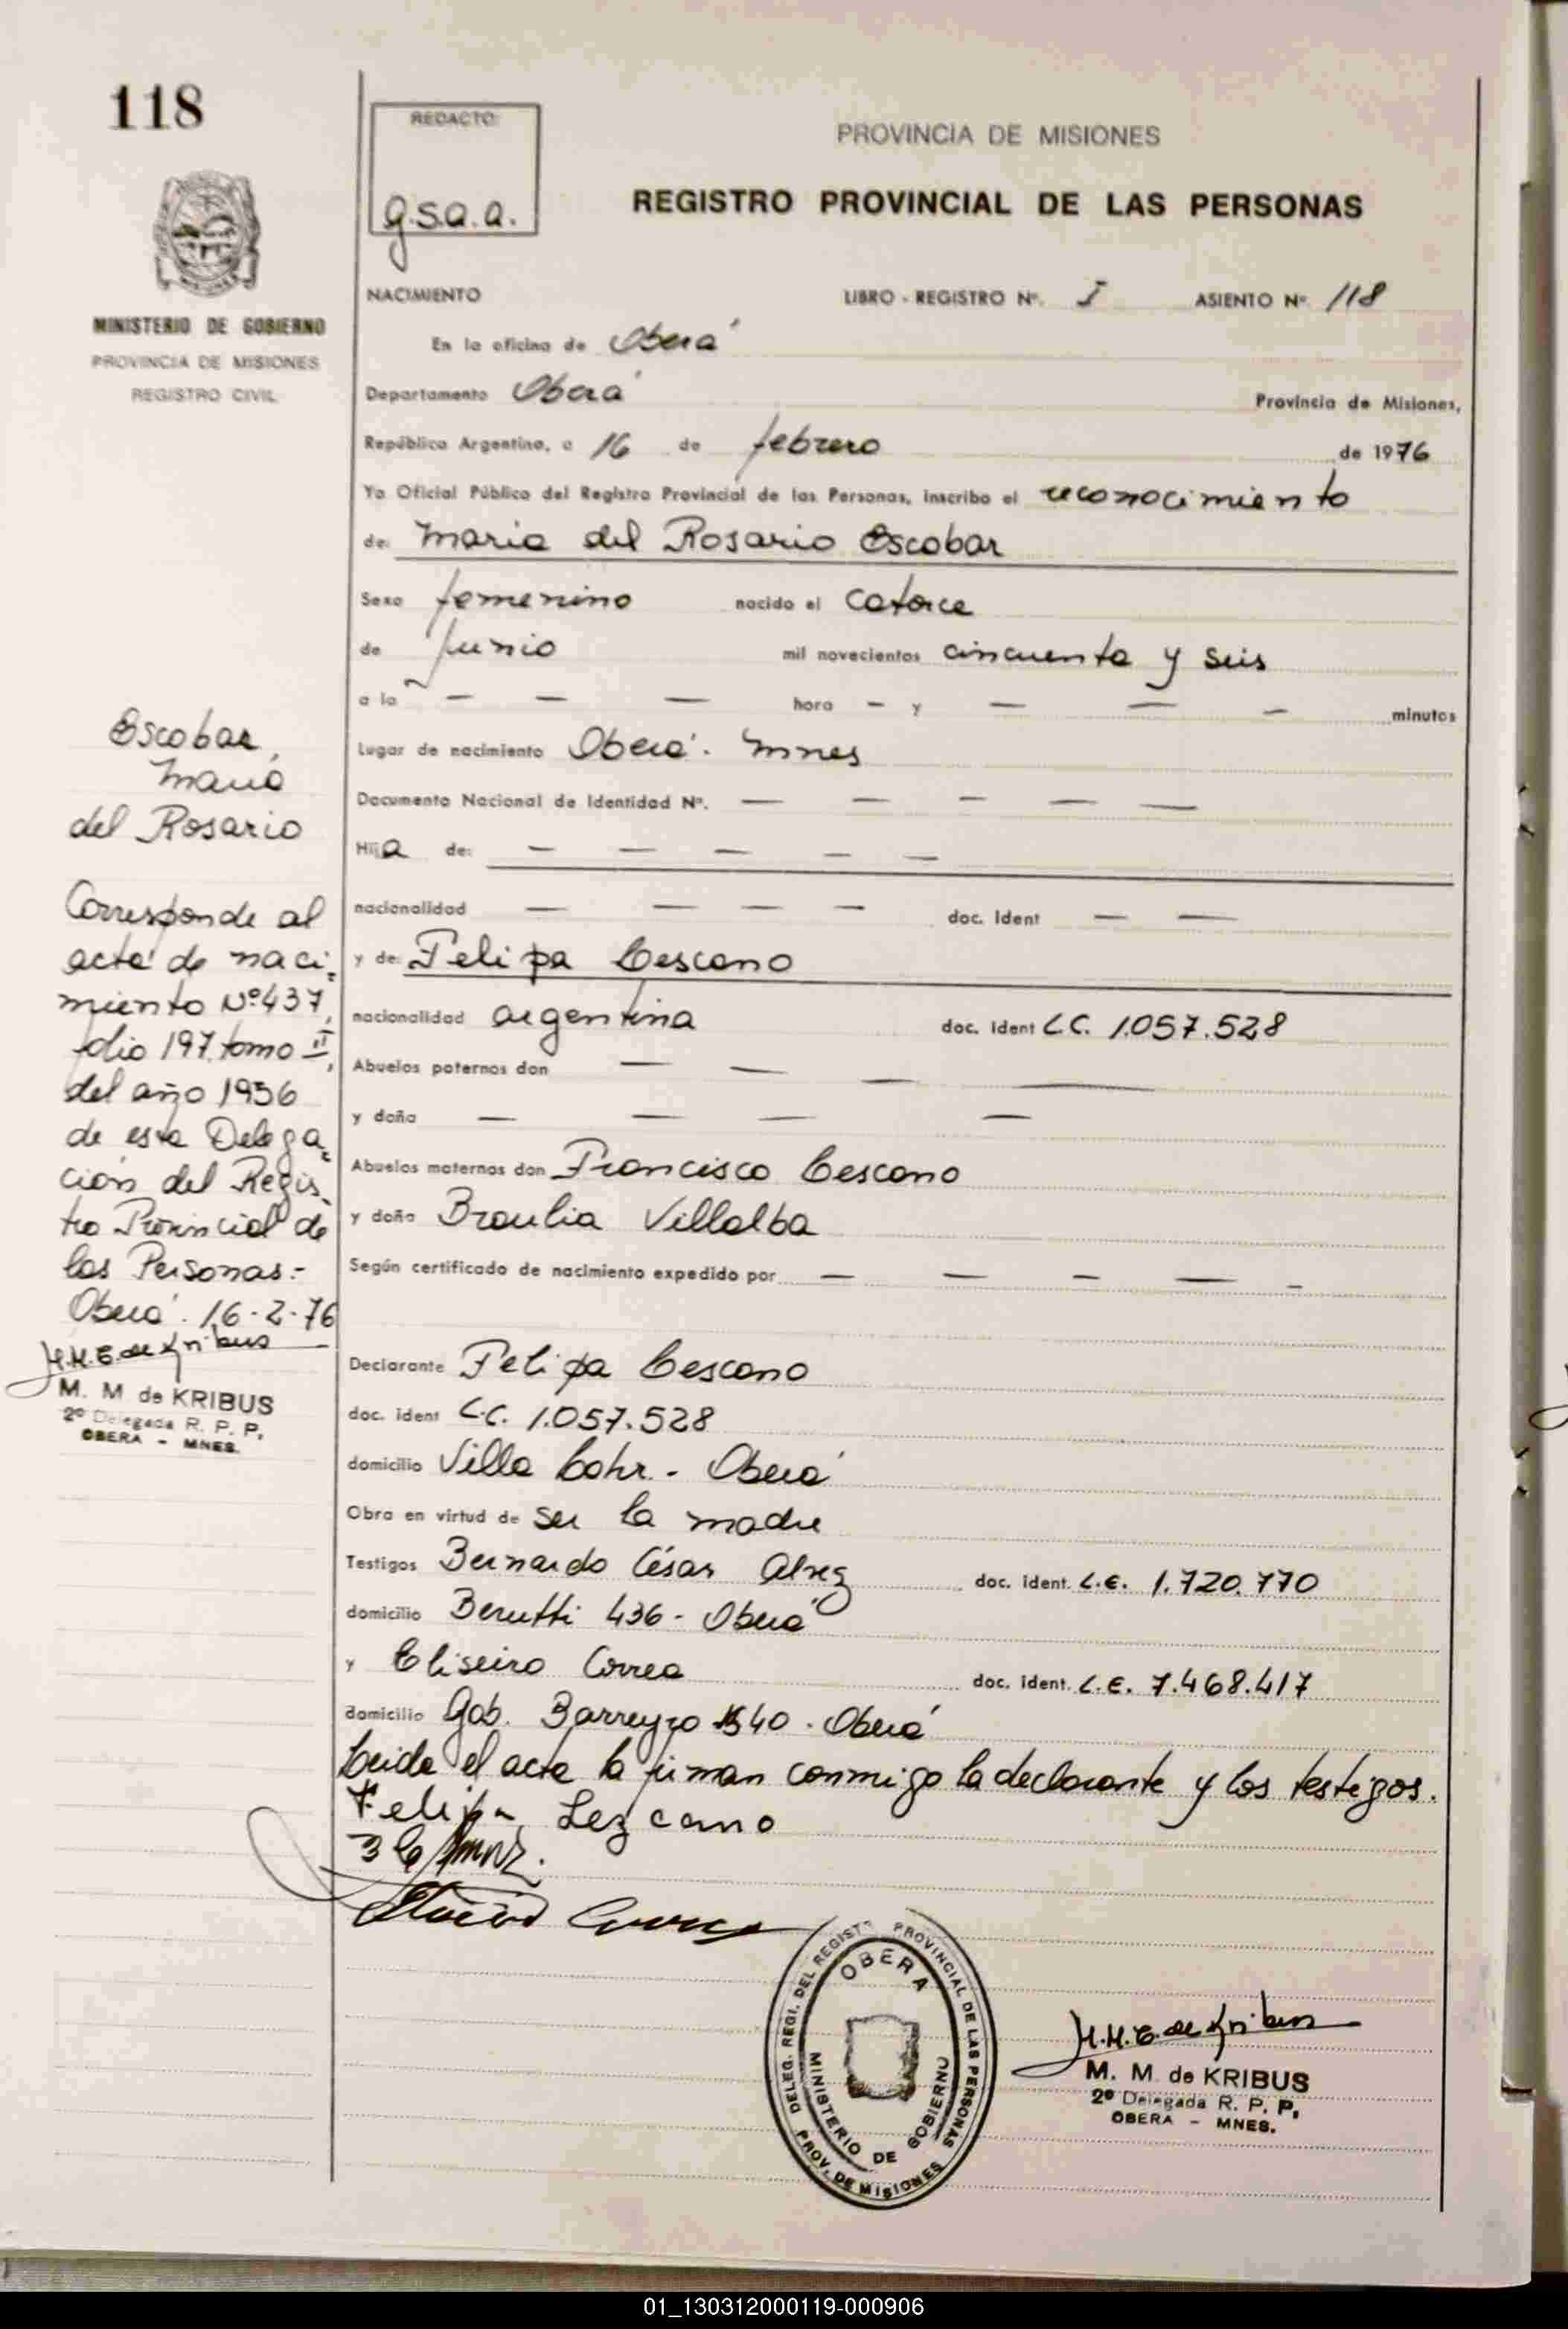 118
REDACTO:
g.s.a.a.
PROVINCIA DE MISIONES
REGISTRO PROVINCIAL DE LAS PERSONAS
MINISTERIO DE GOBIERNO
PROVINCIA DE MISIONES
REGISTRO CIVIL
NACIMIENTO LIBRO - REGISTRO Nº. I ASIENTO Nº. 118
En la oficina de Oberá
Departamento Oberá Provincia de Misiones,
República Argentina, a 16 de febrero de 1976
Yo Oficial Público del Registro Provincial de las Personas, inscribo el reconocimiento
de: Maria del Rosario Escobar
Sexo femenino nacido el catorce
de Junio mil novecientos cincuenta y seis
a la — — — hora — y — — — minutos
Lugar de nacimiento Oberá. Mnes
Documento Nacional de Identidad Nº. — — — — —
Hija de: — — — — —
nacionalidad — — — — doc. Ident — —
y de: Felipa Lescano
nacionalidad argentina doc. Ident L.C. 1.057.528
Abuelos paternos don — — — —
y doña — — — —
Abuelos maternos don Francisco Lescano
y doña Braulia Villalba
Según certificado de nacimiento expedido por — — — — —
Declarante Felipa Lescano
doc. ident L.C. 1.057.528
domicilio Villa Lohr. - Oberá
Obra en virtud de ser la madre
Testigos Bernardo César doc. ident. L.E. 1.720.770
domicilio Berutti 436 - Oberá
y Eliseiro Correa doc. ident. L.E. 7.468.417
domicilio Gob. Barreyro 1540 . Oberá
Leida el acta la firman conmigo la declarante y los testigos.
Felipa Lezcano
Escobar,
Maria
del Rosario
Corresponde al
acta de naci-
miento Nº 437,
folio 197, tomo II,
del año 1956
de esta Delega-
ción del Regis-
tro Provincial de
las Personas.-
Oberá. 16-2-76
M.M.E. de Kribus
M. M de KRIBUS
2º Delegada R. P. P,
OBERA - MNES.
DELEG. REGI. DEL REGISTº PROVINCIAL DE LAS PERSONAS
OBERA
MINISTERIO DE GOBIERNO
PROV. DE MISIONES
M.M.E. de Kribus
M. M de KRIBUS
2º Delegada R. P. P,
OBERA - MNES.
01_130312000119-000906